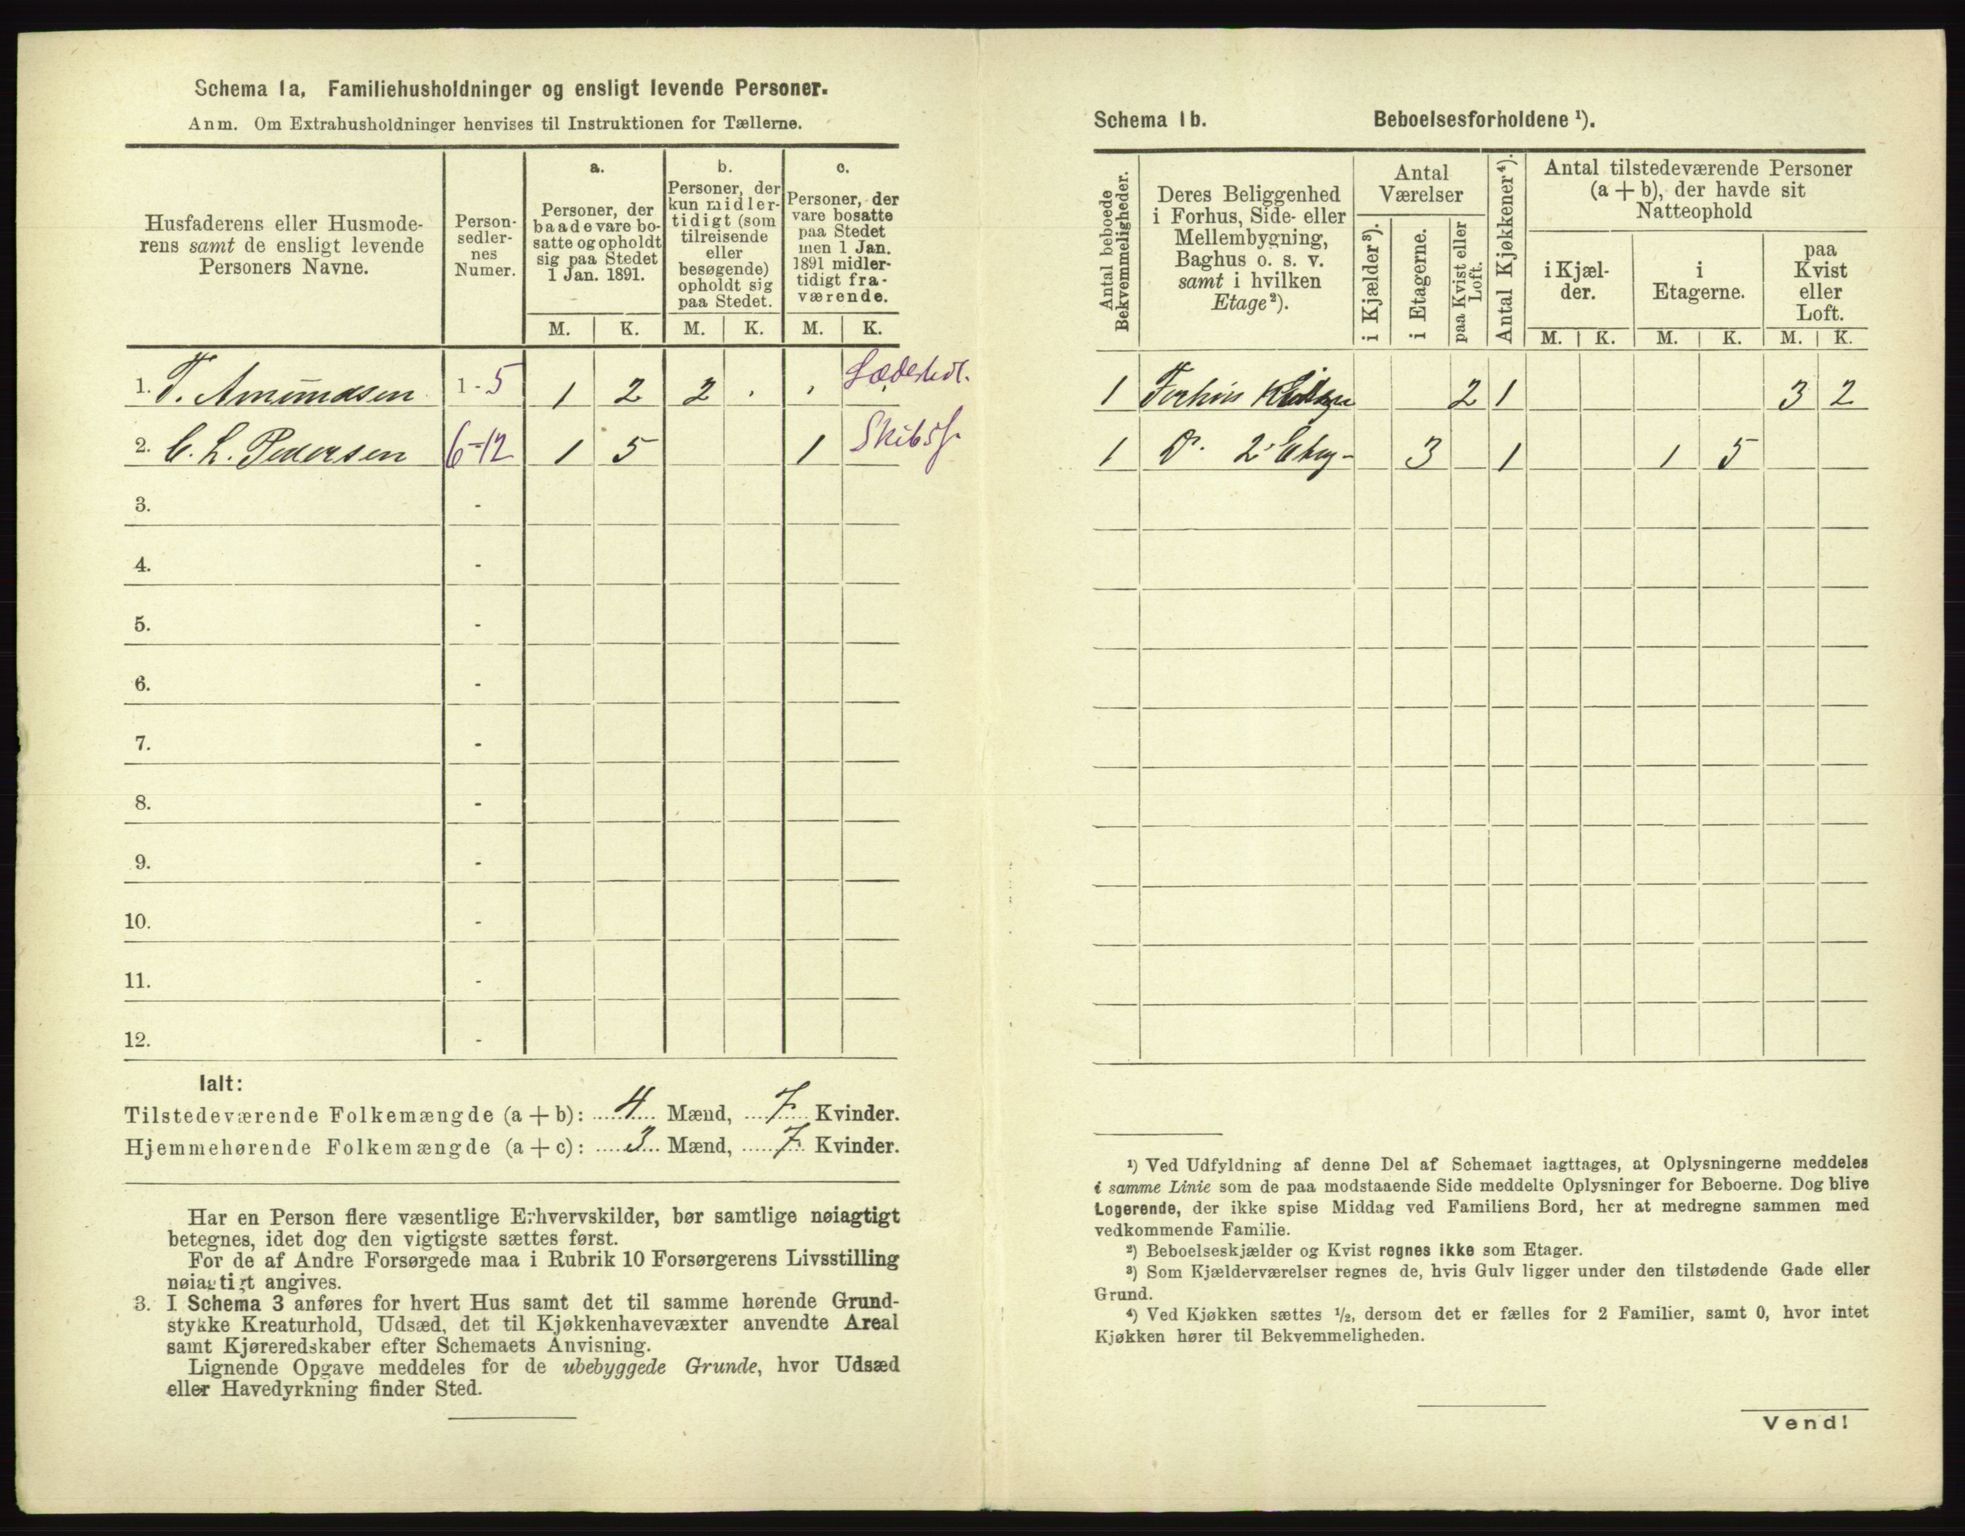 Schema 1a. Familiehusholdninger og ensligt levende Personer.
Anm. Om Extrahusholdninger henvises til Instruktionen for Tællerne.
Husfaderens eller Husmode-
rens samt de ensligt levende
Personers Navne.
Person-
sedler-
nes
Numer.
a.
Personer, der
baade vare bo-
satte og opholdt
sig paa Stedet
1 Jan. 1891.
b.
Personer, der
kun midler-
tidigt (som
tilreisende
eller
besøgende)
opholdt sig
paa Stedet.
c.
Personer, der
vare bosatte
paa Stedet
men 1 Jan.
1891 midler-
tidigt fra-
værende.
M. K. M. K. M. K.
1. T. Amundsen 1-5 1 2 2 . .
2. C. L. Pedersen 6-12 1 5 1 Skibsf.
3. -
4. -
5. -
6. -
7. -
8. -
9. -
10. -
11. -
12. -
Ialt:
Tilstedeværende Folkemængde (a + b): 4 Mænd, 7 Kvinder.
Hjemmehørende Folkemængde (a + c): 3 Mænd, 7 Kvinder.
Har en Person flere væsentlige Erhvervskilder, bør samtlige nøiagtigt
betegnes, idet dog den vigtigste sættes først.
For de af Andre Forsørgede maa i Rubrik 10 Forsørgerens Livsstilling
nøiagtigt angives.
3. I Schema 3 anføres for hvert Hus samt det til samme hørende Grund-
stykke Kreaturhold, Udsæd, det til Kjøkkenhavevæxter anvendte Areal
samt Kjøreredskaber efter Schemaets Anvisning.
Lignende Opgave meddeles for de ubebyggede Grunde, hvor Udsæd
eller Havedyrkning finder Sted.
Schema 1b. Beboelsesforholdene ¹).
Antal beboede
Bekvemmeligheder.
Deres Beliggenhed
i Forhus, Side- eller
Mellembygning,
Baghus o. s. v.
samt i hvilken
Etage²).
Antal
Værelser
i Kjælder³).
i Etagerne.
paa Kvist eller
Loft.
Antal Kjøkkener⁴).
Antal tilstedeværende Personer
(a + b), der havde sit
Natteophold
i Kjæl-
der.
i
Etagerne.
paa
Kvist
eller
Loft.
M. K. M. K. M. K.
1 Forhus 2 1 3 2
1 Do. 2. Etag- 3 1 1 5
¹) Ved Udfyldning af denne Del af Schemaet iagttages, at Oplysningerne meddeles
i samme Linie som de paa modstaaende Side meddelte Oplysninger for Beboerne. Dog blive
Logerende, der ikke spise Middag ved Familiens Bord, her at medregne sammen med
vedkommende Familie.
²) Beboelseskjælder og Kvist regnes ikke som Etager.
³) Som Kjælderværelser regnes de, hvis Gulv ligger under den tilstødende Gade eller
Grund.
⁴) Ved Kjøkken sættes ½, dersom det er fælles for 2 Familier, samt 0, hvor intet
Kjøkken hører til Bekvemmeligheden.
Vend!